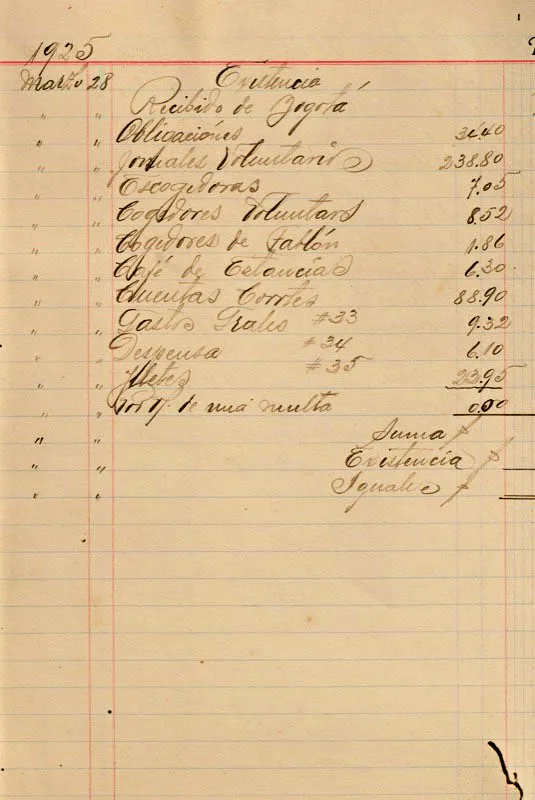 1925
Marzo 28 Existencia
" " Recibido de Bogotá
" " Obligaciónes 34.40
" " Jornales Voluntarios 238.80
" " Escogedoras 7.05
" " Cogedores Voluntars 8.52
" " Cogedores de Tablón 1.86
" " Café de Estancias 6.30
" " Cuentas Corrtes 88.90
" " Gastos Grales #33 9.32
" " Despensa #34 6.10
" " Fletes #35 23.95
" " de una multa 0.00
" " Suma
" " Existencia
" " Iguales